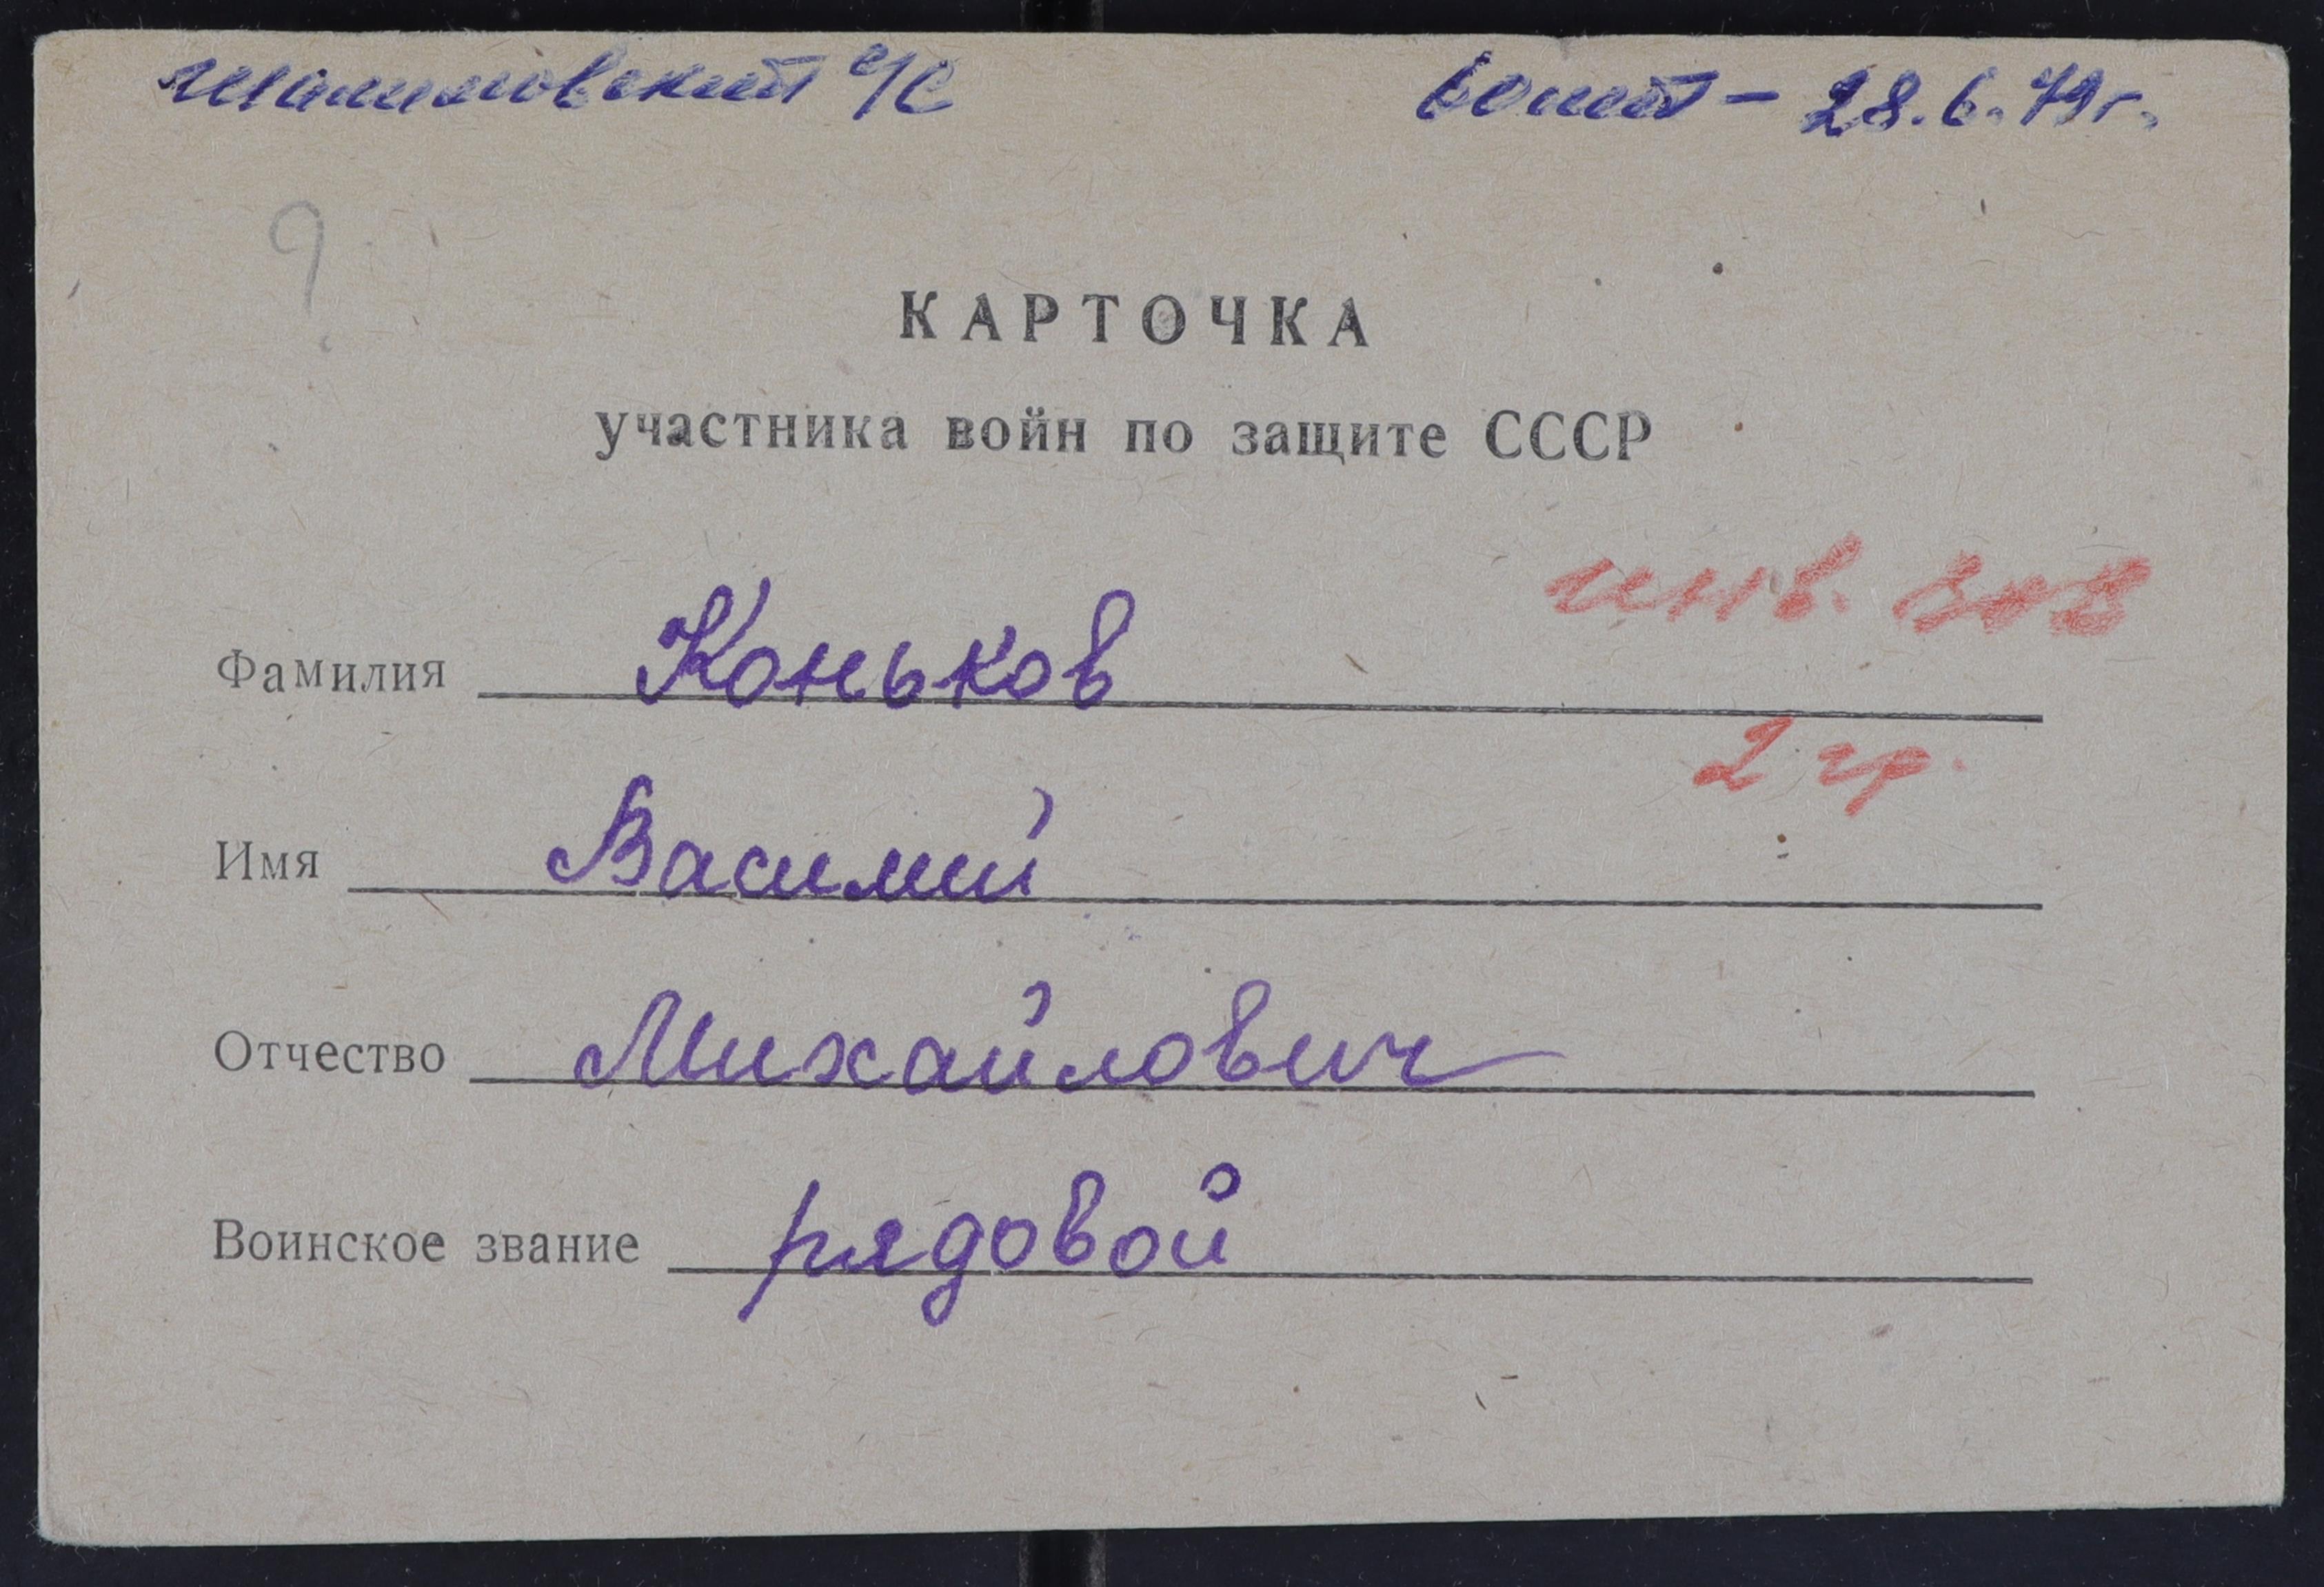 Шалимовский с/с
60 лет – 28.6.79 г.
?
КАРТОЧКА
участника войн по защите СССР
инв.
Фамилия Коньков
2 гр.
Имя Василий
Отчество Михайлович
Воинское звание рядовой